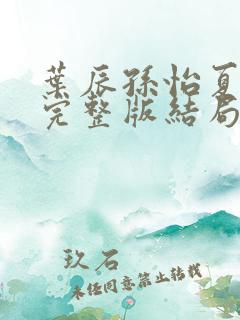 葉辰孫怡夏
完整版結局
玖石
未經同意禁止轉載